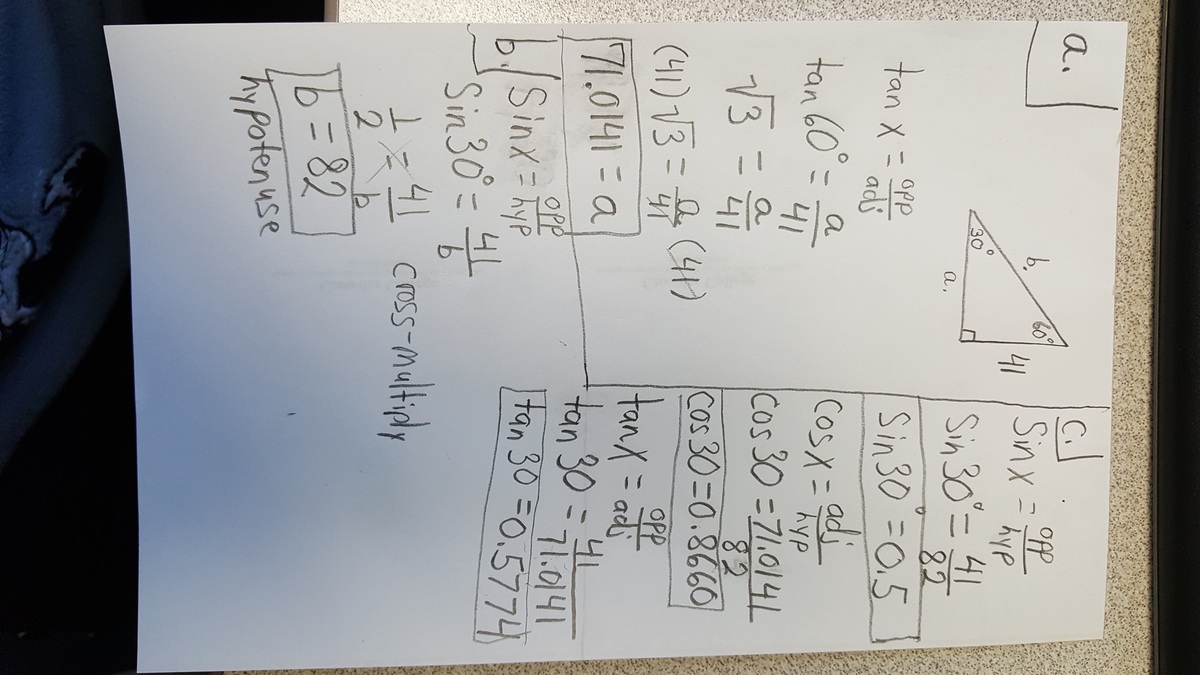 a.
b.
30°
60°
a.
41
tan x = opp/adj
tan 60° = a/41
√3 = a/41
(41)√3 = a/41 (41)
71.0141 = a
b.
Sin x = opp/hyp
Sin 30° = 41/b
1/2 = 41/b cross-multiply
b = 82
hypotenuse
c.
Sin x = opp/hyp
Sin 30° = 41/82
Sin 30° = 0.5
Cos x = adj/hyp
Cos 30 = 71.0141/82
Cos 30 = 0.8660
tan x = opp/adj
tan 30 = 41/71.0141
tan 30 = 0.5774